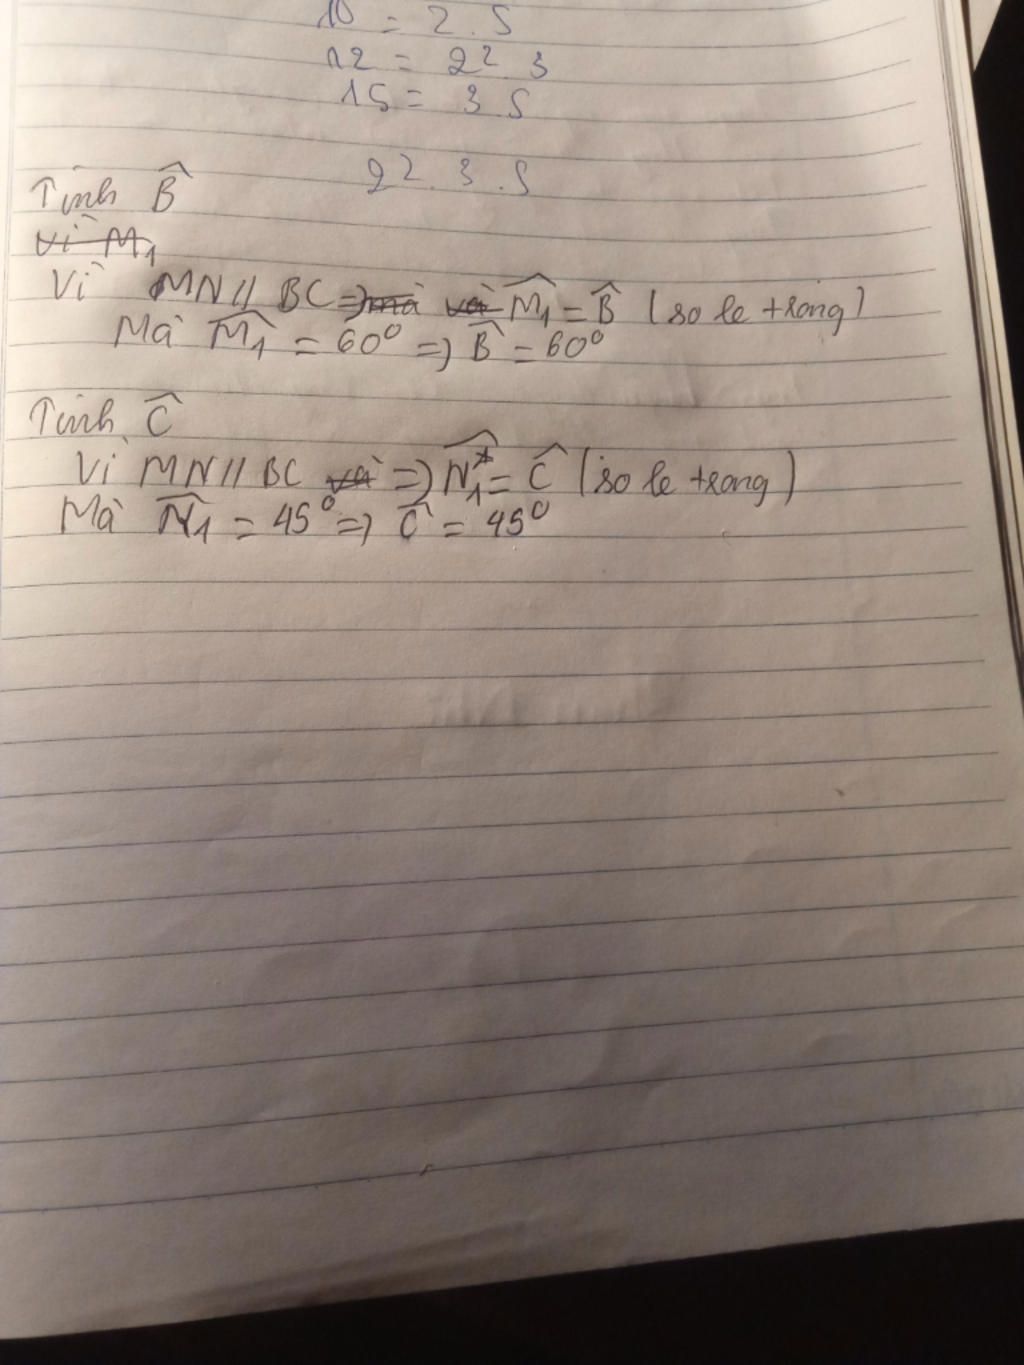 10 = 2 . 5
12 = 2² . 3
15 = 3 . 5
2² . 3 . 5
Tính B̂
Vì M₁
Vì MN // BC => mà và M̂₁ = B̂ (so le trong)
Mà M̂₁ = 60⁰ => B̂ = 60⁰
Tính Ĉ
Vì MN // BC và => N̂₁ = Ĉ (so le trong)
Mà N̂₁ = 45⁰ => Ĉ = 45⁰